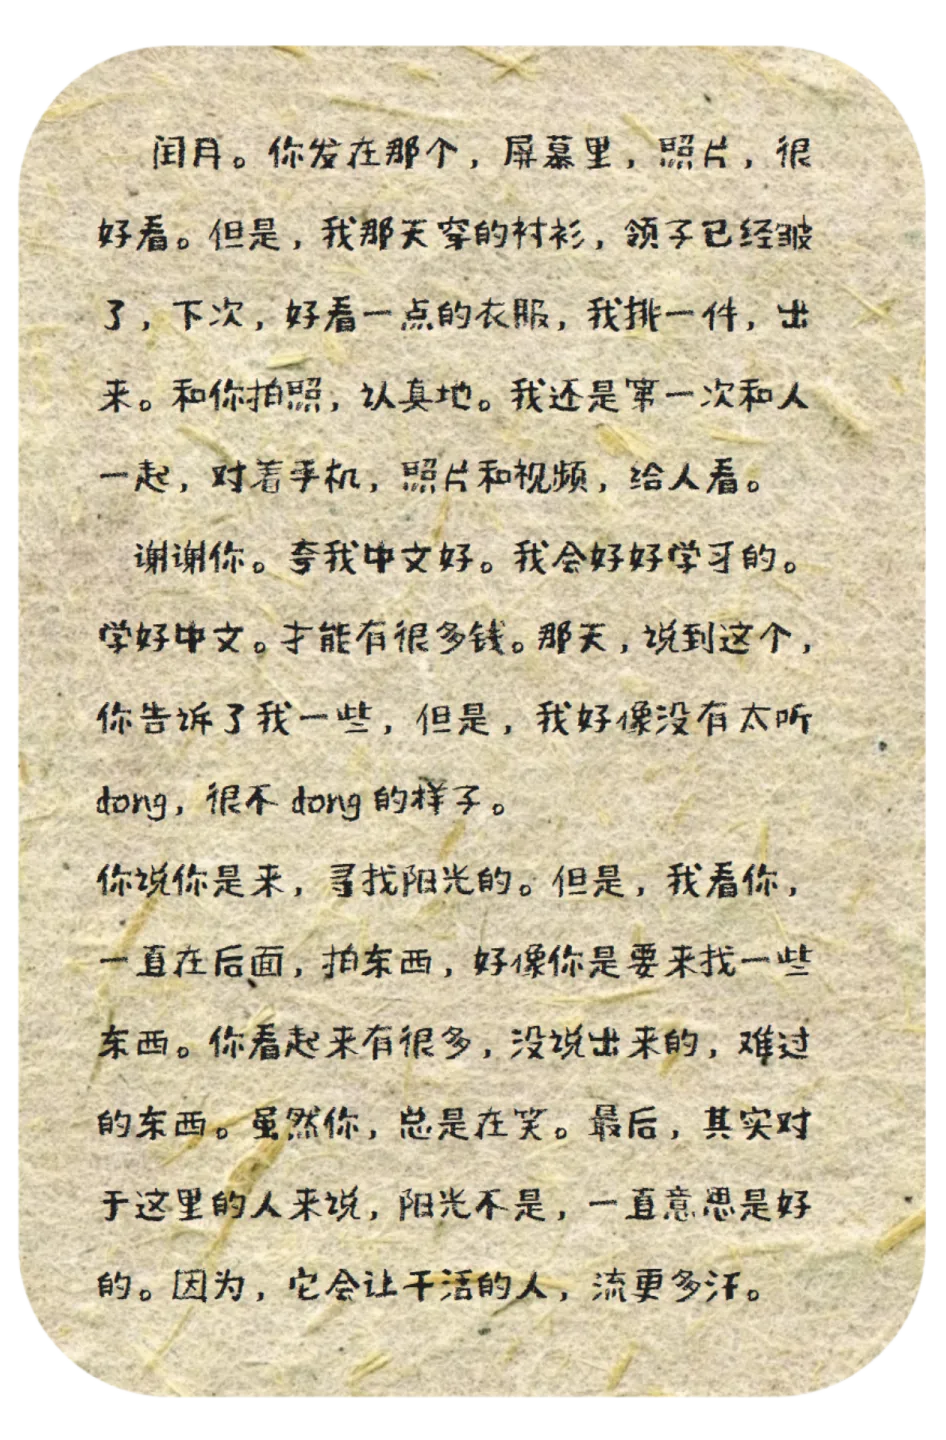 闰月。你发在那个，屏幕里，照片，很
好看。但是，我那天穿的衬衫，领子已经皱
了，下次，好看一点的衣服，我挑一件，出
来。和你拍照，认真地。我还是第一次和人
一起，对着手机，照片和视频，给人看。
谢谢你。夸我中文好。我会好好学习的。
学好中文。才能有很多钱。那天，说到这个，
你告诉了我一些，但是，我好像没有太听
dong，很不 dong 的样子。
你说你是来，寻找阳光的。但是，我看你，
一直在后面，拍东西，好像你是要来找一些
东西。你看起来有很多，没说出来的，难过
的东西。虽然你，总是在笑。最后，其实对
于这里的人来说，阳光不是，一直意思是好
的。因为，它会让干活的人，流更多汗。